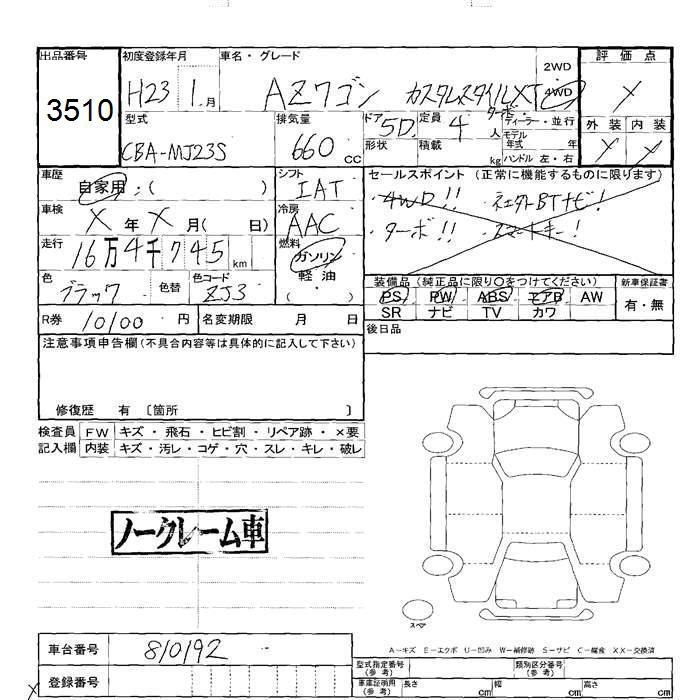 出品番号 初度登録年月 車名・グレード 2WD 評価点
3510 H23 1月 AZワゴン カスタムスタイルXT 4WD
ターボ
型式 排気量 ドア 5D 定員 4人 ディーラー・並行 外装 内装
CBA-MJ23S 660cc 形状 積載 kg モデル年式 年
ハンドル 左・右
車歴 自家用:( ) シフト IAT セールスポイント(正常に機能するものに限ります)
車検 X年X月( 日) 冷房 AAC ・4WD!!
・ターボ!!
走行 16万4千745km 燃料 ガソリン
軽油
( )
色 ブラック 色替 色コード ZJ3 装備品(純正品に限り○をつけてください) 新車保証書
PS PW ABS エアB AW 有・無
SR ナビ TV カワ
R券 10100円 名変期限 月 日 後日品
注意事項申告欄(不具合内容等は具体的に記入して下さい)
修復歴 有 〔箇所 〕
検査員 FW キズ・飛石・ヒビ割・リペア跡・×要
記入欄 内装 キズ・汚レ・コゲ・穴・スレ・キレ・破レ
ノークレーム車
スペア
A-キズ E-エクボ U-凹み W-補修跡 S-サビ C-腐食 XX-交換済
車台番号 810192 型式指定番号(参考) 類別区分番号(参考)
登録番号 車庫証明用(参考) 長さ cm 幅 cm 高さ cm